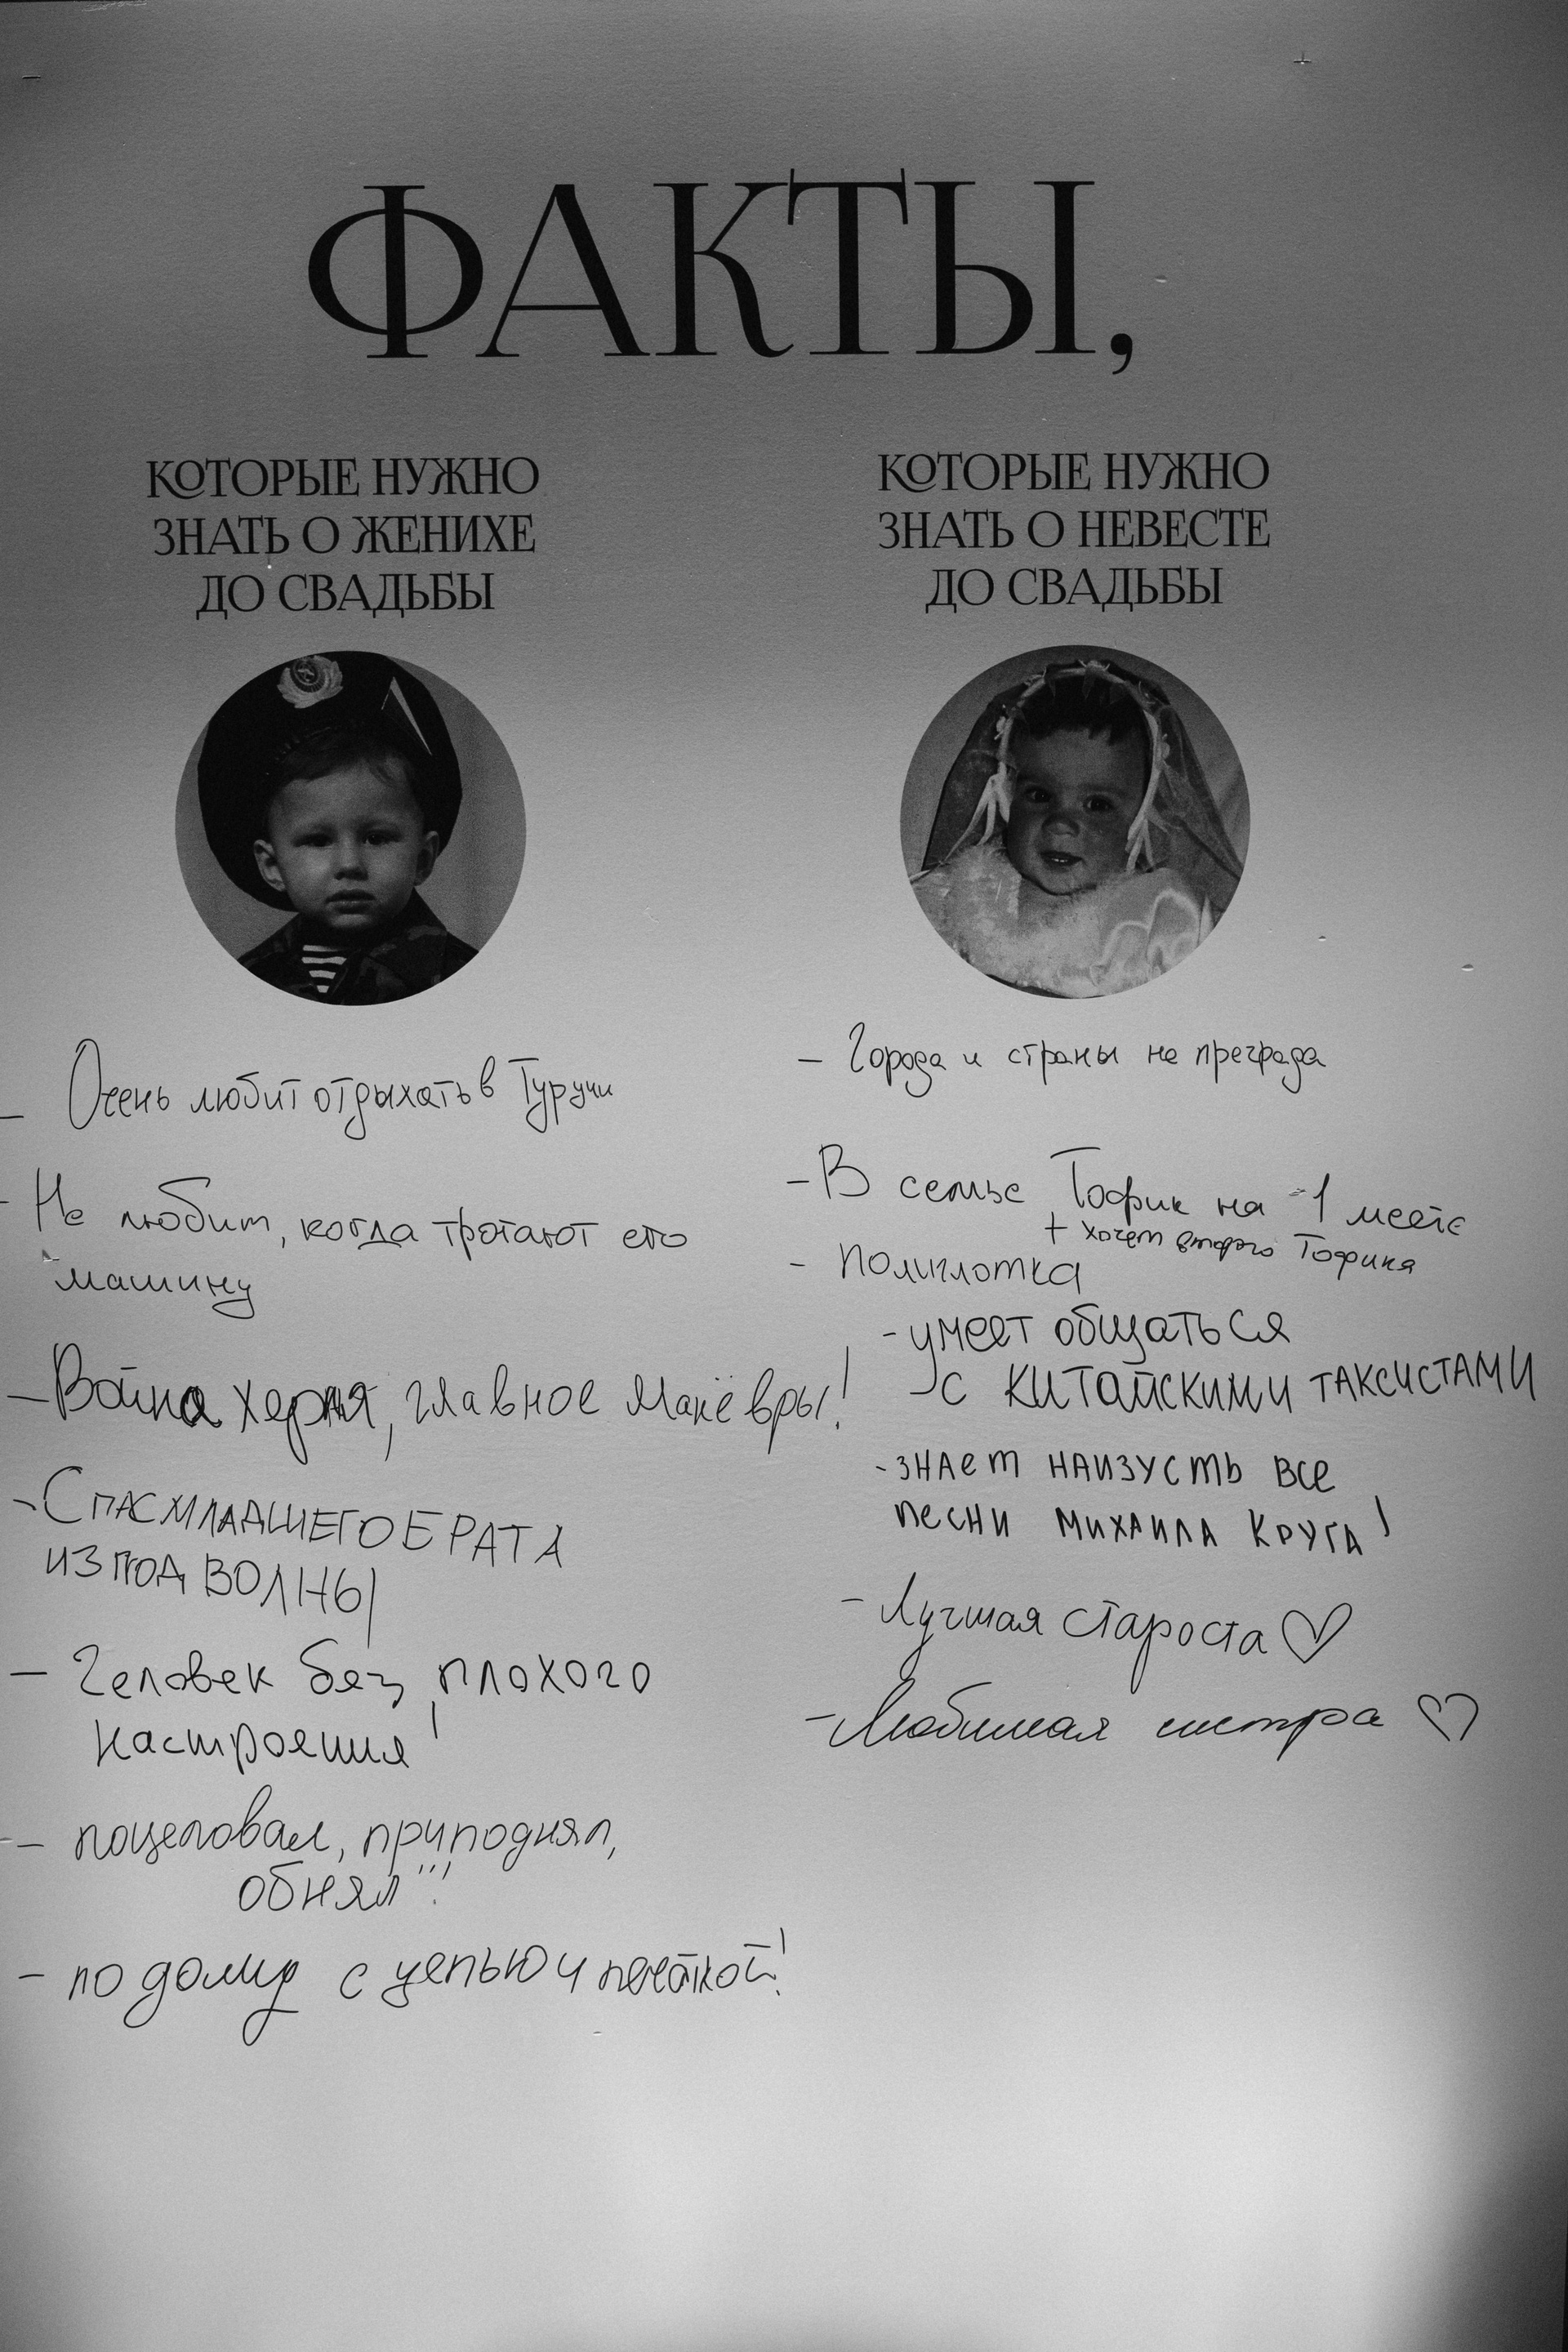 ФАКТЫ,
КОТОРЫЕ НУЖНО
ЗНАТЬ О ЖЕНИХЕ
ДО СВАДЬБЫ
– Очень любит отдыхать в Туручи
- Не любит, когда трогают его
машину
– Война херня, главное манёвры!
- СПАС МЛАДШЕГО БРАТА
ИЗПОД ВОЛНЫ
– Человек без плохого
настроения!
– поцеловал, приподнял,
обнял!!!
– по дому с цепью и печаткой!
КОТОРЫЕ НУЖНО
ЗНАТЬ О НЕВЕСТЕ
ДО СВАДЬБЫ
– Города и страны не преграда
- В семье Тофик на -1 месте
+ хочет второго Тофика
- полиглотка
- умеет общаться
с КИТАЙСКИМИ ТАКСИСТАМИ
- знает наизусть все
песни МИХАИЛА КРУГА!
- Лучшая староста ♡
- Любимая сестра ♡